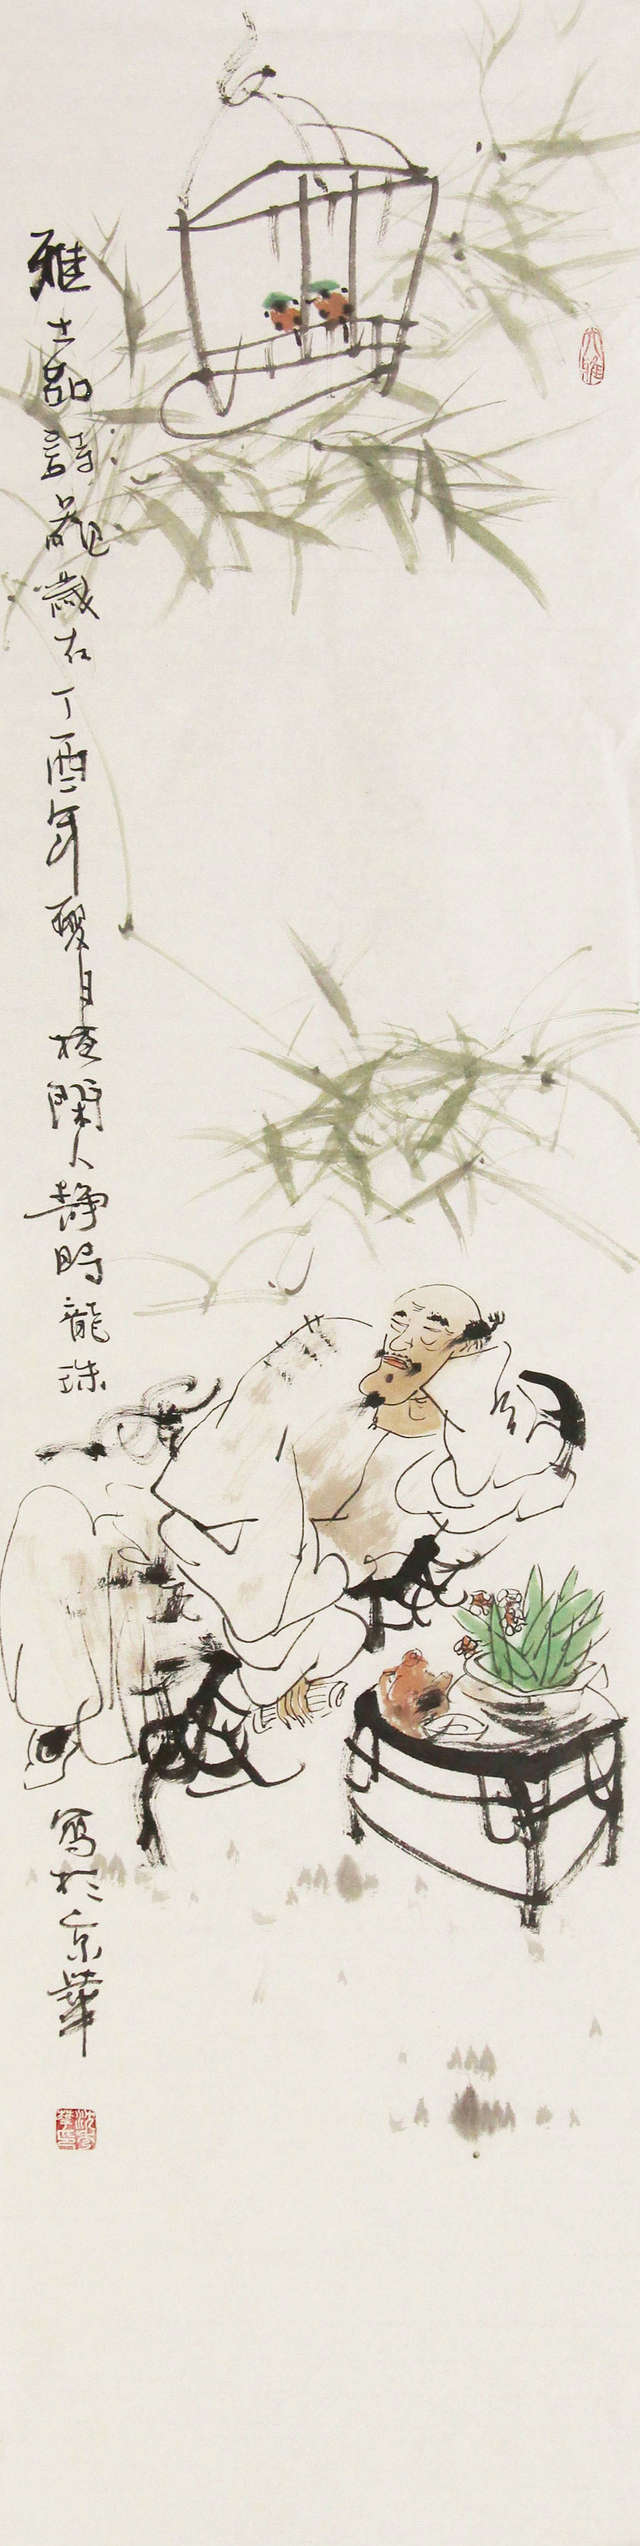 大雅
雅士品詩歲在丁酉年夏月於閑人靜時龍珠
寫於京華